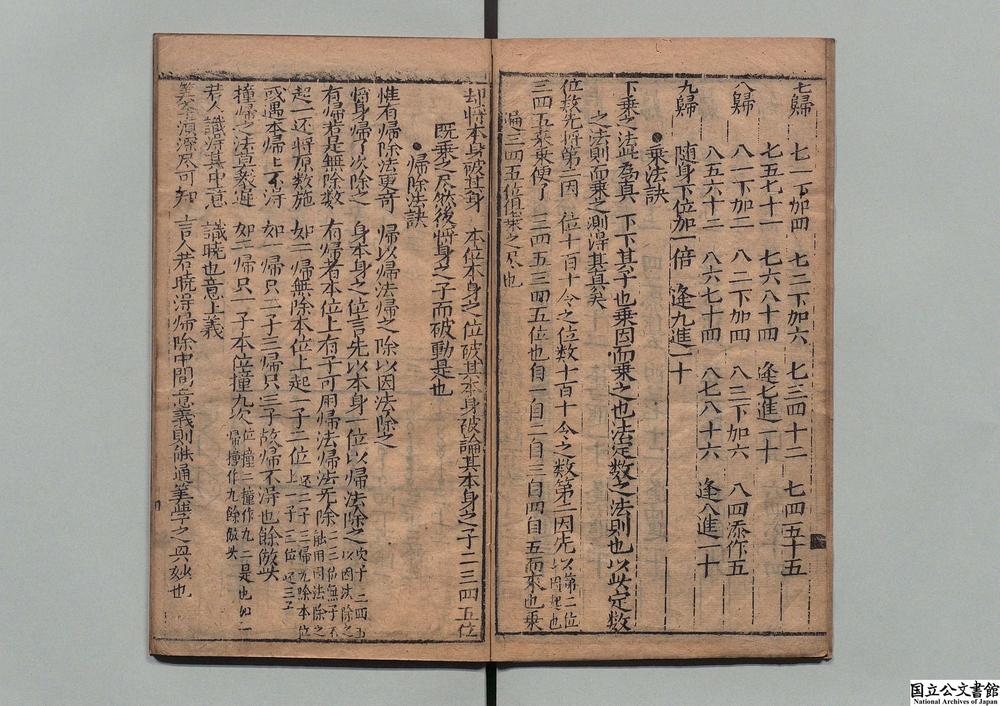 七歸　七一下加四　七二下加六　七三四十二　七四五十五
七五七十一　七六八十四　逢七進一十
八歸　八一下加二　八二下加四　八三下加六　八四添作五
八五六十二　八六七十四　八七八十六　逢八進一十
九歸　隨身下位加一倍　逢九進一十
乘法訣
下乘之法此為真　下下其子也乘因而乘之也法定數之法則也以此定數
之法則而乘之則得其真矣
位數先將第二因　位十百十令之位數十百十令之數第二因先以第二位
三四五乘乘便了　三四五三四五位也自一自二自三自四自五而來也乘
遍三四五位俱乘之尽也
却將本身破其身　本位本身之位破其本身破論其本身之子二三四五位
既乘之尽然後將身之子而破動是也
歸除法訣
惟有歸除法更奇　歸以歸法歸之除以因法除之
將身歸了次除之　身本身之位言先以本身一位以歸法除之次十二四五以因法除之
有歸若是無除數　有歸者本位上有子可用歸法歸法无除
起一还將原數施　如二歸無除本位上起一子二位
或遇本歸上不淂　如一歸只一子三歸只三子故歸不淂也餘倣此
撞歸之法莫教遲　如二歸只一子本位撞九次位撞二撞作九二是也如一歸撞作九餘倣此
若人識得其中意　識曉也意上義
筭學湏深尽可知　言人若曉淂歸除中間意義則能通筭學之奧妙也
国立公文書館
National Archives of Japan